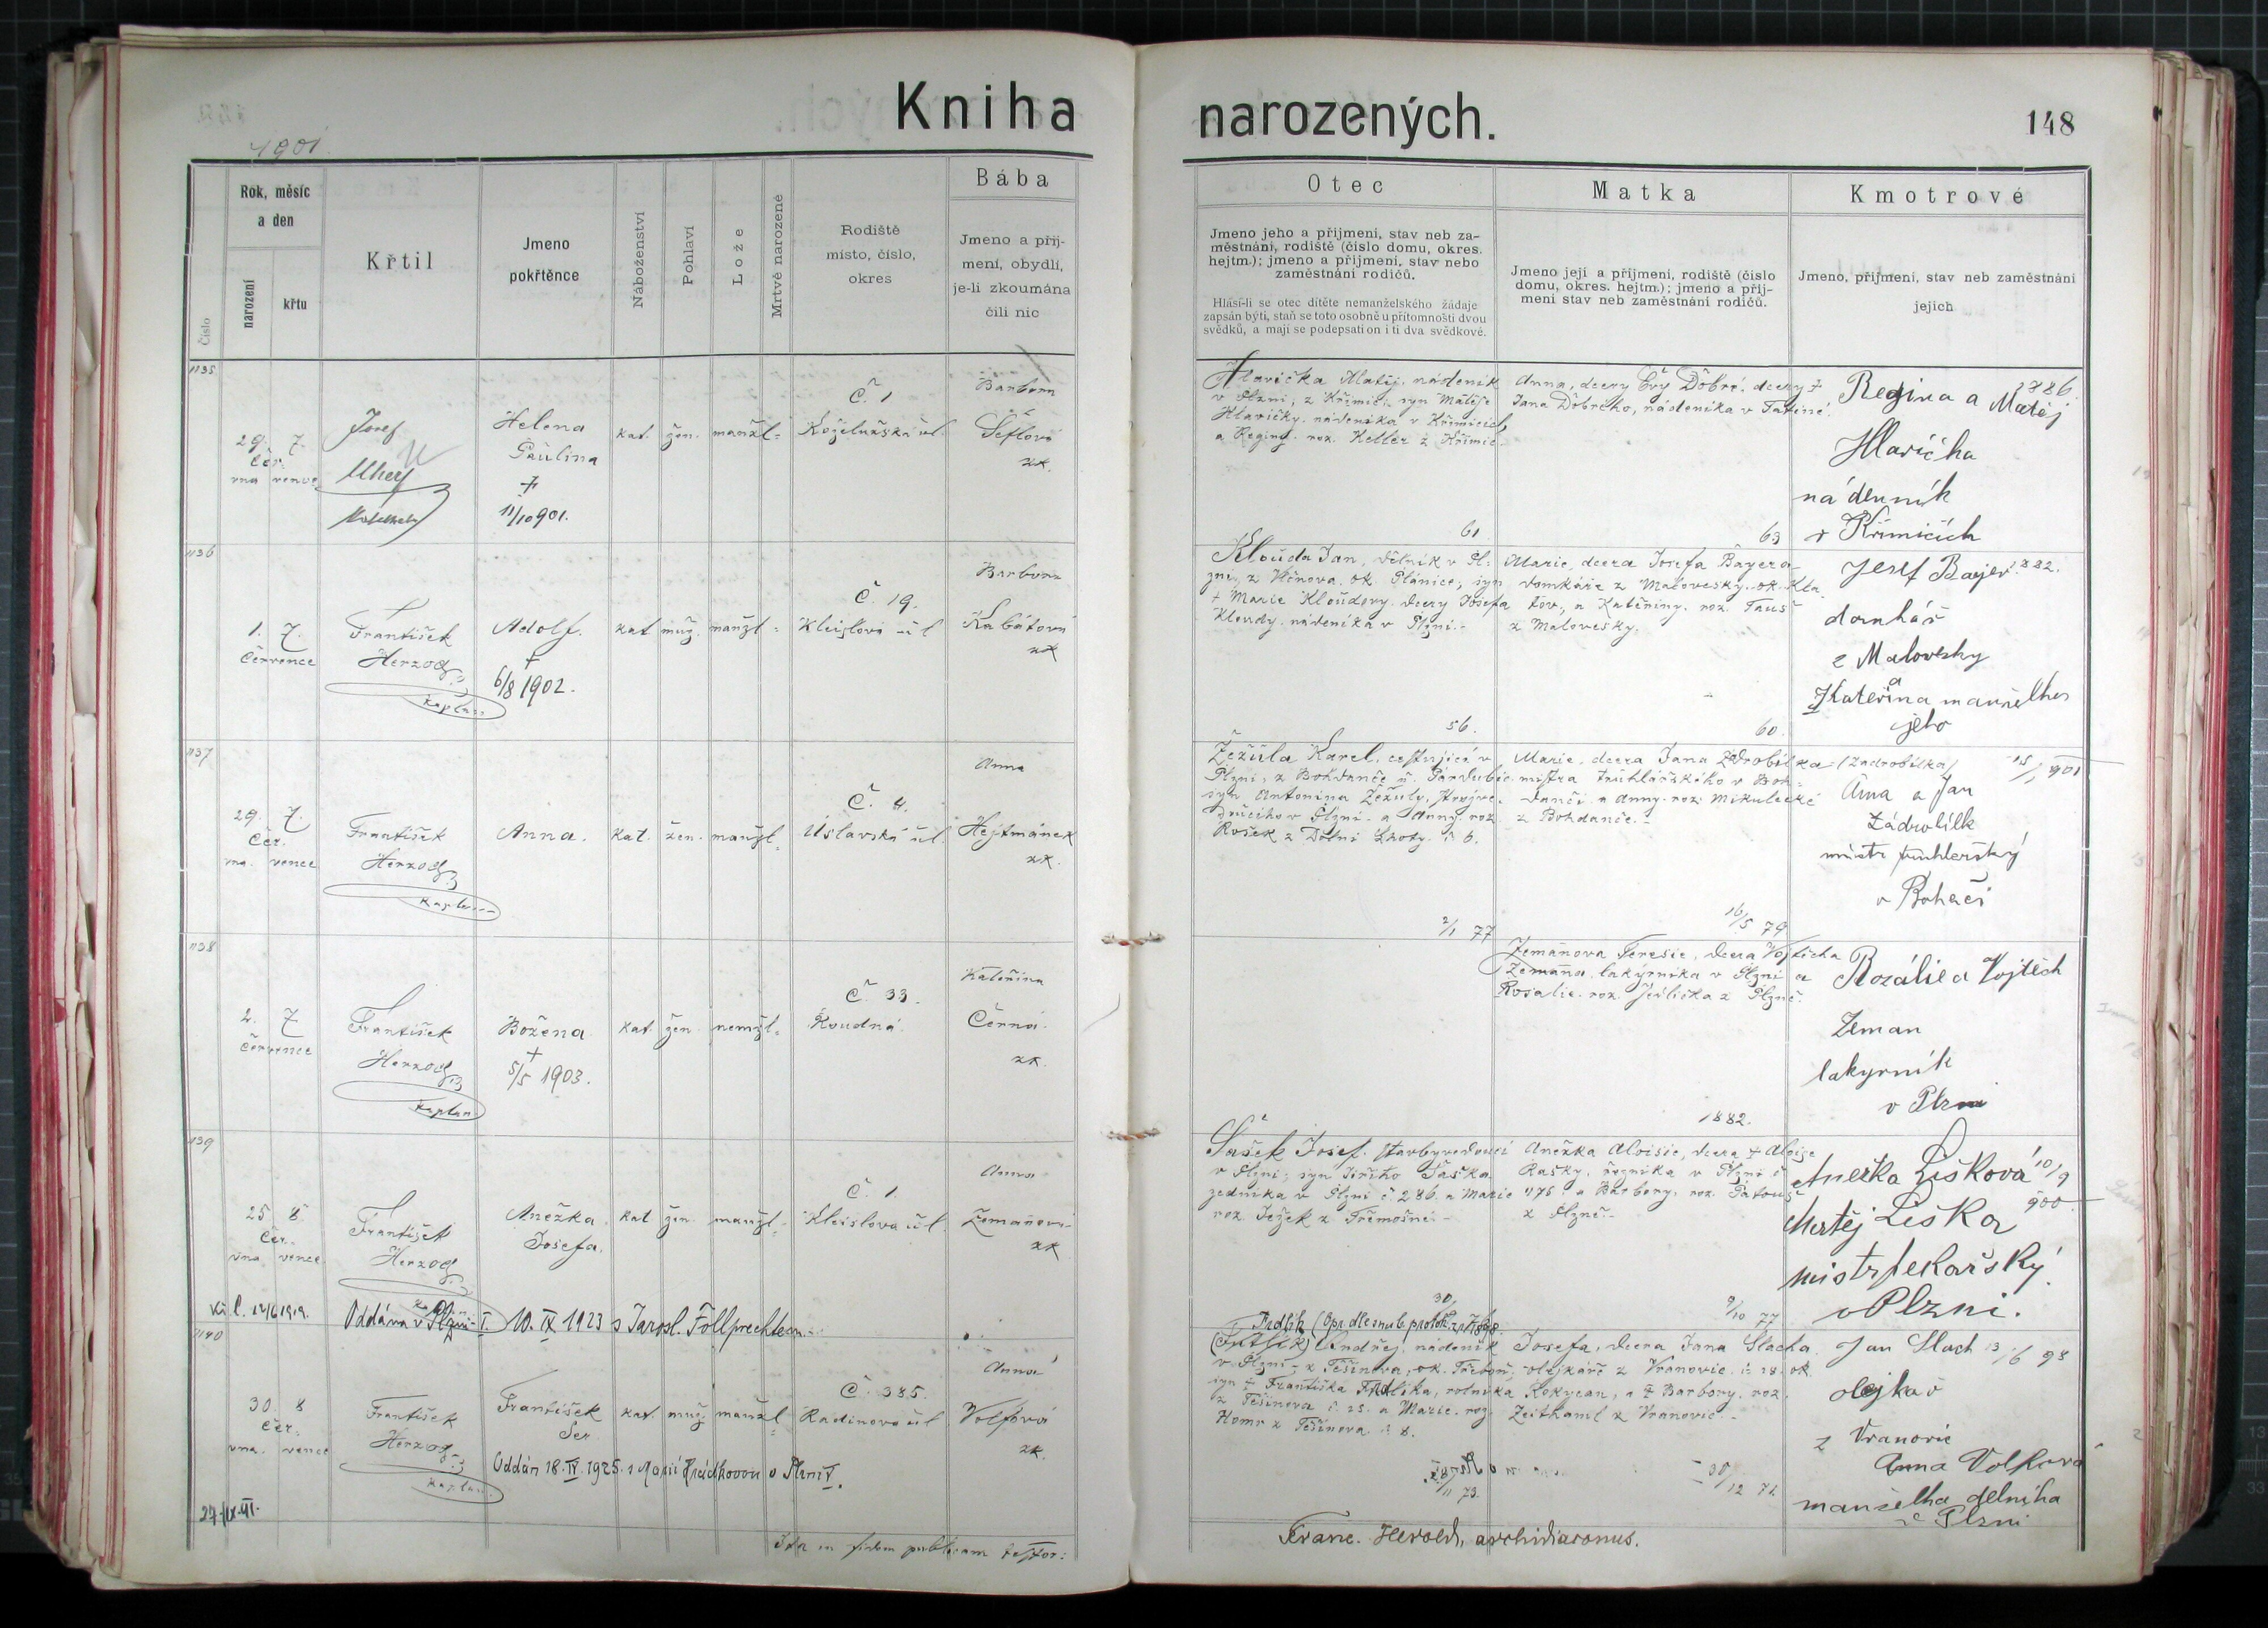 Kniha narozených.
148
1901.
Číslo
Rok, měsíc
a den
narození
křtu
Křtil
Jmeno
pokřtěnce
Náboženství
Pohlaví
Lože
Mrtvě narozené
Rodiště
místo, číslo,
okres
Bába
Jmeno a příj-
mení, obydlí,
je-li zkoumána
čili nic
Otec
Jmeno jeho a příjmení, stav neb za-
městnání, rodiště (číslo domu, okres.
hejtm.); jmeno a příjmení, stav nebo
zaměstnání rodičů.
Hlásí-li se otec dítěte nemanželského žádaje
zapsán býti, staň se toto osobně u přítomnosti dvou
svědků, a mají se podepsati on i ti dva svědkové.
Matka
Jmeno její a příjmení, rodiště (číslo
domu, okres. hejtm.); jmeno a příj-
mení stav neb zaměstnání rodičů.
Kmotrové
Jmeno, příjmení, stav neb zaměstnání
jejich
1135
29. 7.
Čer.
vna vence
Josef
Uher
Helena
Paulina
+
11/10 901.
kat. žen. manžl.
Č. 1
Koželužská ul.
Barbora
Šeflová
zk.
Hlavička Matěj, nádeník
v Plzni, z Křimic, syn Matěje
Hlavičky, nádeníka v Křimicích
a Reginy roz. Keller z Křimic.
61
Anna, dcery Evy Dobré, dcery +
Jana Dobrého, nádeníka v
63
Regina a Matěj 1886.
Hlavička
nádenník
v Křimicích
1136
1. 7.
července
František
Herzog
kaplan
Adolf.
+
6/8 1902.
kat. muž. manžl.
Č. 19.
Kleislova ul
Barbora
Kabátová
zk
Klouda Jan, dělník v Pl-
zni, z ok. Plánice, syn
+ Marie Kloudovy, dcery Josefa
Kloudy, nádeníka v Plzni.-
56.
Marie, dcera Josefa Bayera
domkáře z Malovesky, ok. Kla
tov., a Kateřiny, roz. Tauš
z Malovesky.
60.
Josef Bayer 1882.
domkář
z Malovesky
a
Kateřina manželka
jeho
1137
29. 7.
Čer.
vna. vence
František
Herzog
kaplan
Anna.
kat. žen. manžl.
Č. 4.
Úslavská ul.
Anna
Hejtmánek
zk.
Žežula Karel, cestující v
Plzni, z Bohdanče u Pardubic
syn Antonína Žežuly, strojve-
doucího v Plzni a Anny roz.
Rošek z Dolní Lhoty č. 6.
2/1 77
Marie, dcera Jana Zádrobílka (Zadrobílka)
mistra truhlářského v Boh-
danči a Anny roz. Mikulecké
z Bohdanče.-
16/5 79
15/1 901
Anna a Jan
Zádrobílk
mistr truhlářský
v
1138
2. 7
července
František
Herzog
kaplan
Božena
+
5/5 1903.
kat. žen. nemžl.
Č. 33.
Roudná.
Kateřina
Černá.
zk.
Zemanova Teresie, dcera Vojtěcha
Zemana, lakýrníka v Plzni a
Rosalie roz. Jedlička z Plzně.
1882.
Rozálie a Vojtěch
Zeman
lakyrník
v Plzni
1139
25. 8.
Čer.
vna vence
František
Herzog
Anežka
Josefa.
kat žen manžl.
Č. 1.
Kleislova ul.
Anna
Zemanová
zk
Šašek Josef, stavbyvedoucí
v Plzni, syn Jiřího Šaška
zedníka v Plzni č. 286. a Marie
roz. Ježek z Třemošné.-
Anežka Aloisie, dcera + Aloise
Rašky, řezníka v Plzni č.
1175. a Barbory, roz. Patouš
z Plzně.-
9/10 77
Anežka Lišková 10/9 900
Matěj Liška
mistr pekařský
v Plzni.
Kř. l. 12/6 1919.
Oddána v Plzni-I. 10. IX 1923 s Jarosl. Föllprechtem.-
1140
30. 8
Čer.
vna. vence
František
Herzog
kaplan
František
Ser
kat. muž manžl
Č. 385.
Radinova ul
Anna
Volfová
zk.
Oddán 18. IV. 1925. s Marií Hrádkovou v Plzni V.
Andřej, nádeník
v Plzni, z Těšínova, ok. Třeboň,
syn + Františka Fidlíka, rolníka
z Těšínova č. 25. a Marie roz.
z Těšínova č. 8.
Josefa, dcera Jana Slacha
olejkáře z Vranovic č. 28, ok.
Rokycan, a + Barbory, roz.
Zeithaml z Vranovic.-
30/12 71.
Jan Slach 13/6 98
olejkář
z Vranovic
Anna Volfová
manželka dělníka
v Plzni
27./IX. 41.
Ita in fidem publicam testor:
Franc. Herold, archidiaconus.